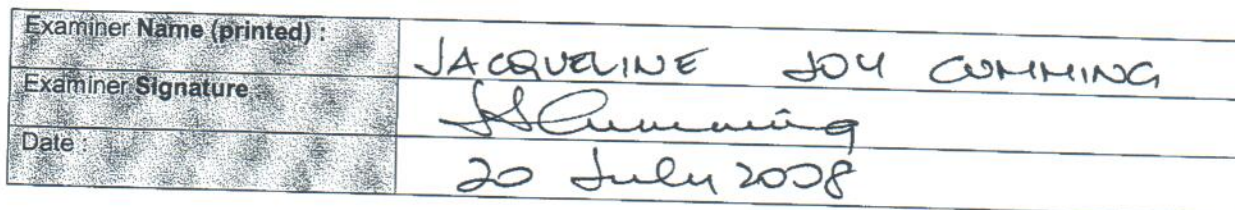 Examiner Name (printed) : JACQUELINE JOY CUMMING
Examiner Signature JJCumming
Date : 20 July 2008